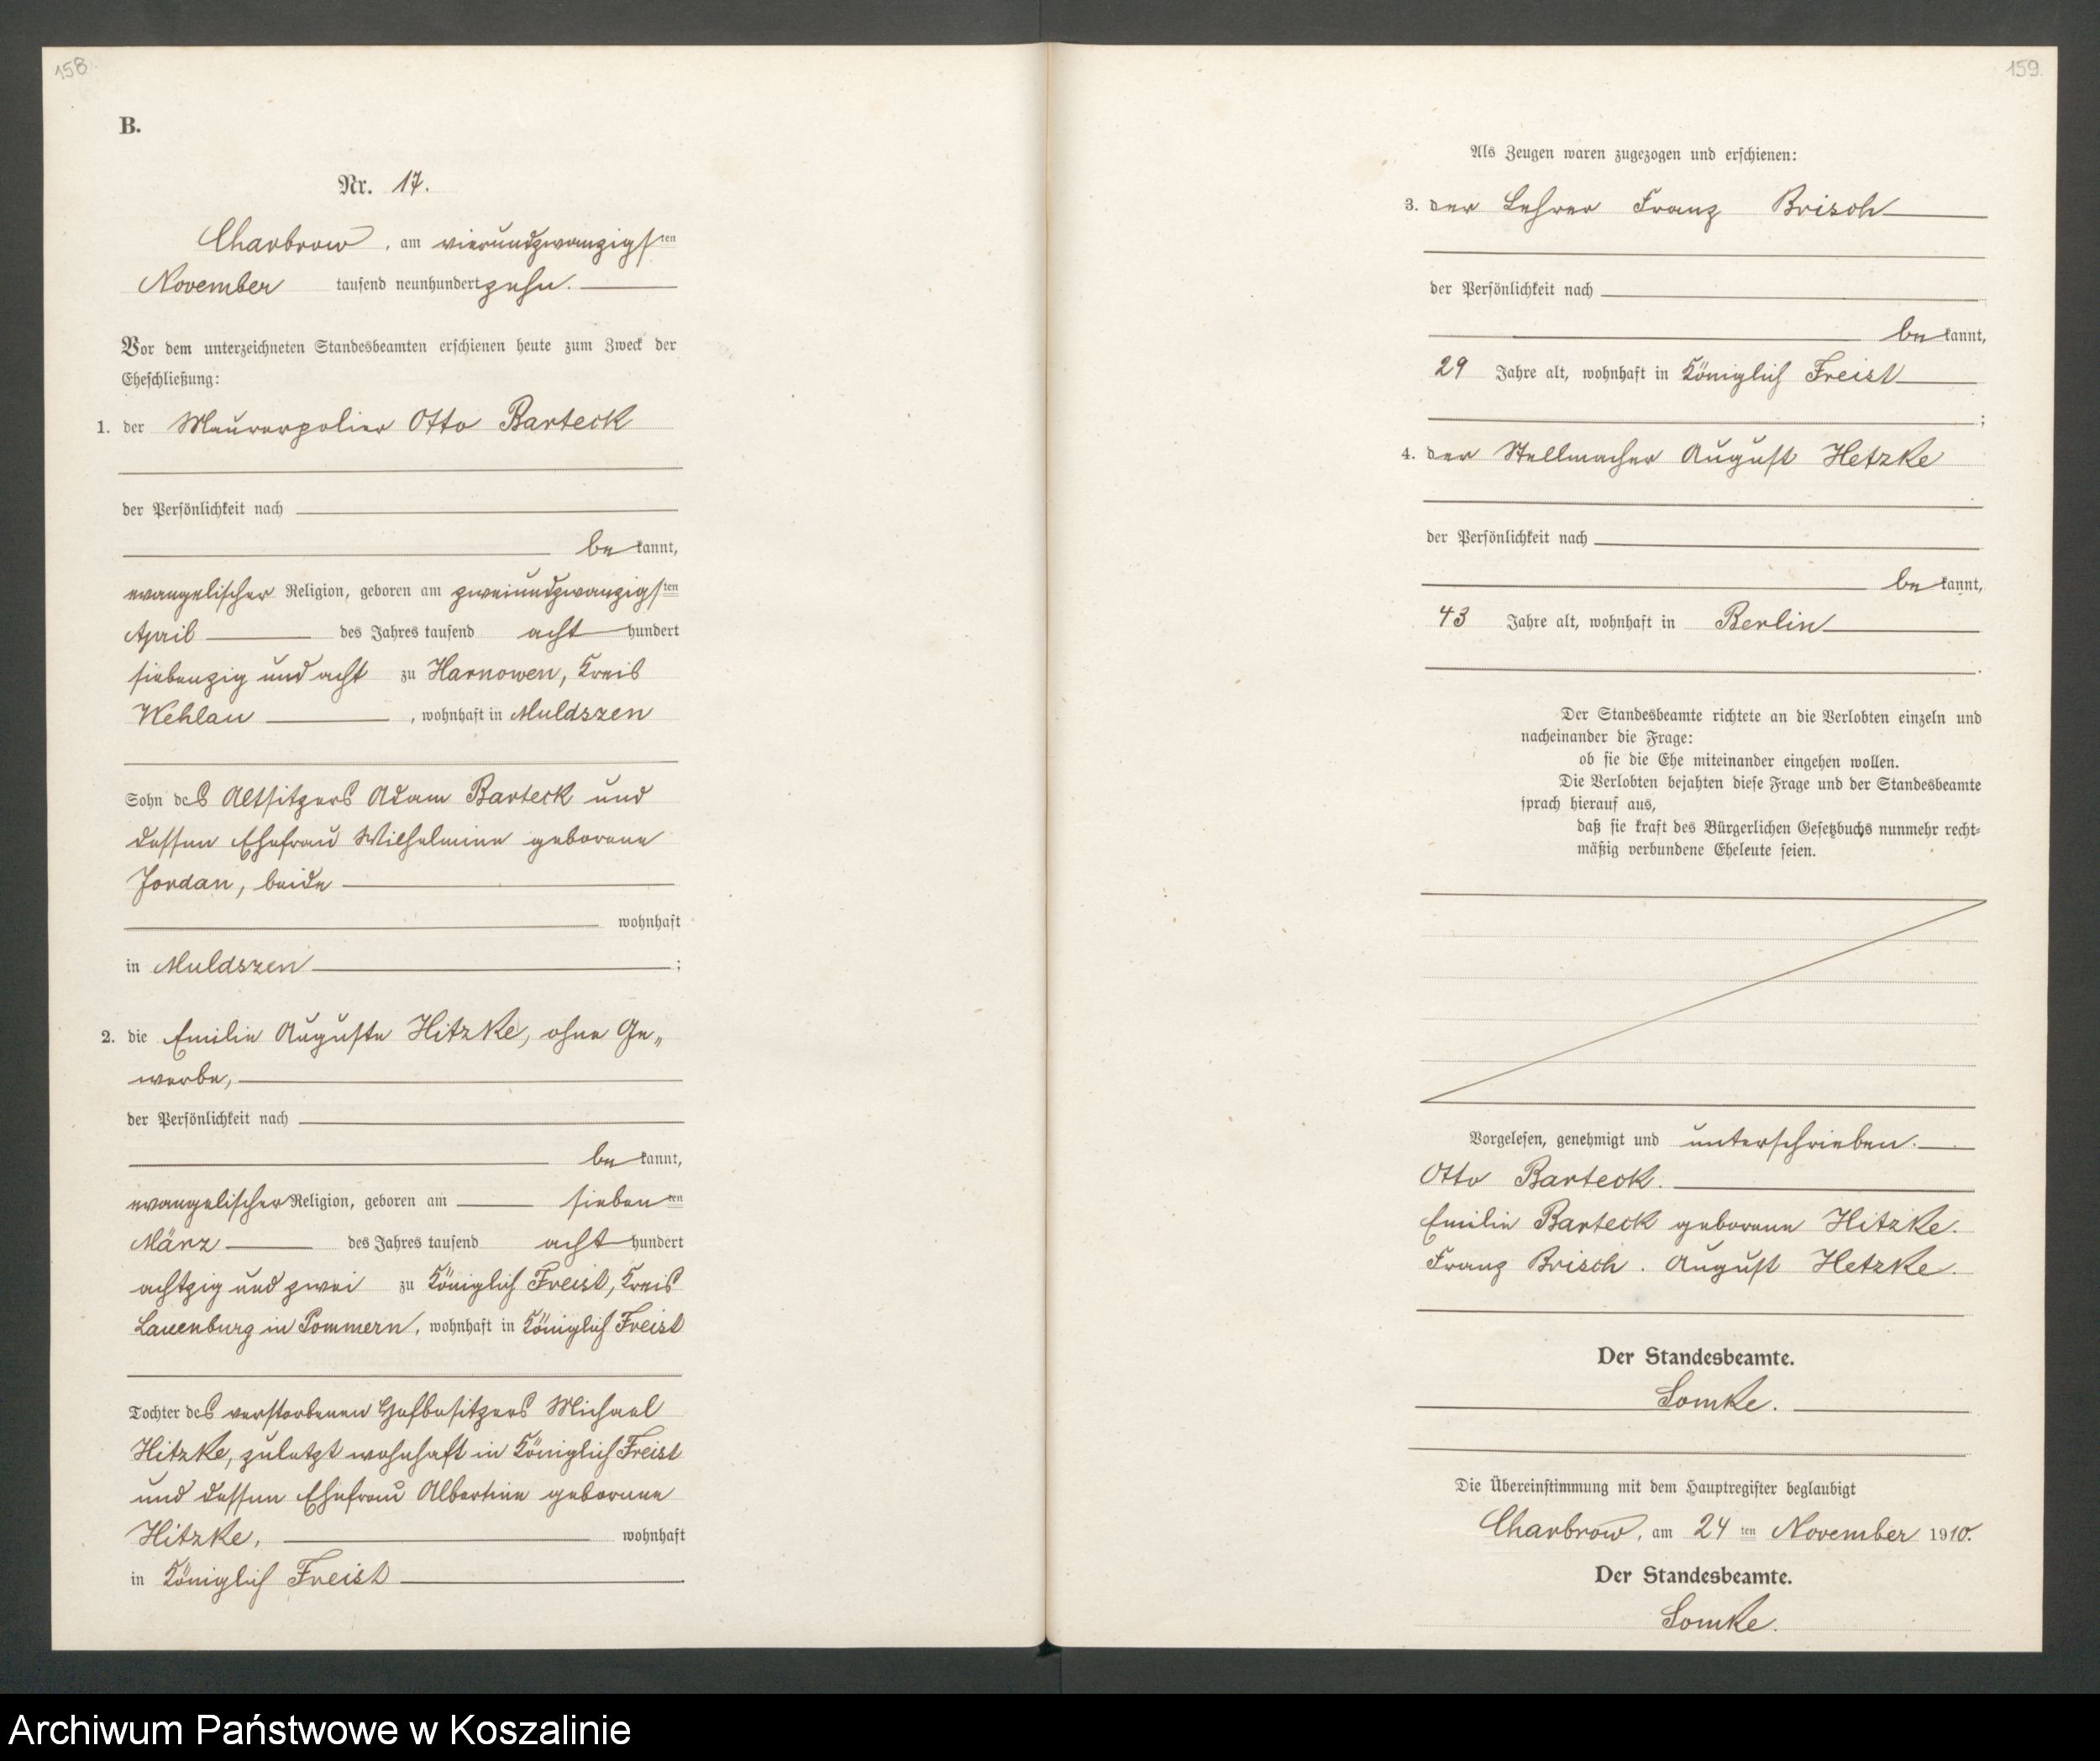 158
B.
Nr. 17.
Charbrow, am vierundzwanzigsten
November tausend neunhundert zehn.
Vor dem unterzeichneten Standesbeamten erschienen heute zum Zweck der
Eheschließung:
1. der Maurerpolier Otto Barteck
der Persönlichkeit nach
be kannt,
evangelischer Religion, geboren am zweiundzwanzigsten
April des Jahres tausend acht hundert
siebenzig und acht zu Harnowen, Kreis
Wehlau, wohnhaft in Muldszen
Sohn des Altsitzers Adam Barteck und
dessen Ehefrau Wilhelmine geborene
Jordan, beide
wohnhaft
in Muldszen;
2. die Emilie Auguste Hitzke, ohne Ge„
werbe,
der Persönlichkeit nach
be kannt,
evangelischer Religion, geboren am siebenten
März des Jahres tausend acht hundert
achtzig und zwei zu Königlich Freist, Kreis
Lauenburg in Pommern, wohnhaft in Königlich Freist
Tochter des verstorbenen Hofbesitzers Michael
Hitzke, zuletzt wohnhaft in Königlich Freist
und dessen Ehefrau Albertine geborene
Hitzke, wohnhaft
in Königlich Freist
159.
Als Zeugen waren zugezogen und erschienen:
3. der Lehrer Franz Brisch
der Persönlichkeit nach
be kannt,
29 Jahre alt, wohnhaft in Königlich Freist
;
4. der Stellmacher August Hetzke
der Persönlichkeit nach
be kannt,
43 Jahre alt, wohnhaft in Berlin
.
Der Standesbeamte richtete an die Verlobten einzeln und
nacheinander die Frage:
ob sie die Ehe miteinander eingehen wollen.
Die Verlobten bejahten diese Frage und der Standesbeamte
sprach hierauf aus,
daß sie kraft des Bürgerlichen Gesetzbuchs nunmehr recht-
mäßig verbundene Eheleute seien.
Vorgelesen, genehmigt und unterschrieben.
Otto Barteck.
Emilie Barteck geborene Hitzke.
Franz Brisch. August Hetzke.
Der Standesbeamte.
Lomke.
Die Übereinstimmung mit dem Hauptregister beglaubigt
Charbrow, am 24 ten November 1910.
Der Standesbeamte.
Lomke.
Archiwum Państwowe w Koszalinie